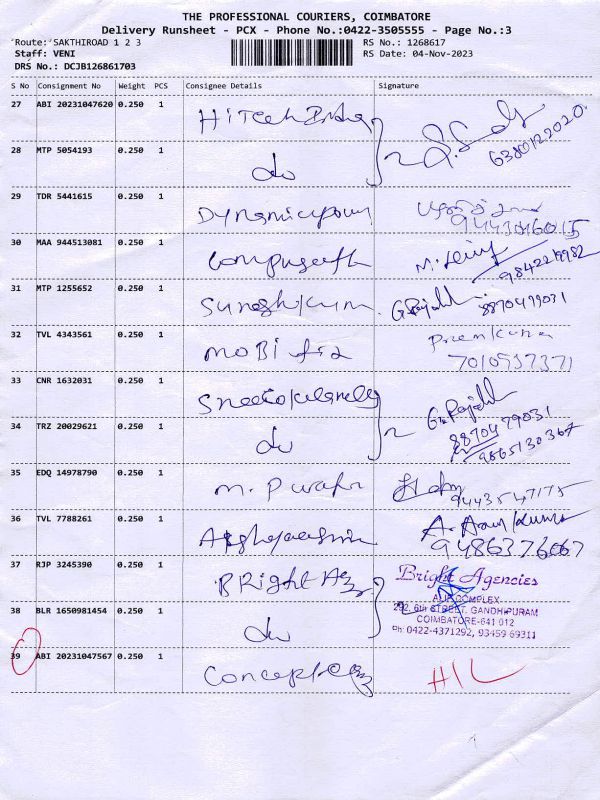 THE PROFESSIONAL COURIERS, COIMBATORE
Delivery Runsheet - PCX - Phone No.:0422-3505555 - Page No.:3
Route: SAKTHIROAD 1 2 3 RS No.: 1268617
Staff: VENI RS Date: 04-Nov-2023
DRS No.: DCJB126861703
S No Consignment No Weight PCS Consignee Details Signature
27 ABI 20231047620 0.250 1
6380122020
28 MTP 5054193 0.250 1 do
29 TDR 5441615 0.250 1
9443016015
30 MAA 944513081 0.250 1
9842219982
31 MTP 1255652 0.250 1 Sureshkum G. Rajabl
8870479031
32 TVL 4343561 0.250 1 MOBI fix Premkumar
7010957371
33 CNR 1632031 0.250 1
G. Rajabl
8870479031
34 TRZ 20029621 0.250 1 do
9865130367
35 EDQ 14978790 0.250 1 M.
9443547175
36 TVL 7788261 0.250 1 A. Arun Kumar
9486376067
37 RJP 3245390 0.250 1 BRight Ag
Bright Agencies
COMPLEX
292, 6th STREET, GANDHIPURAM
38 BLR 1650981454 0.250 1 do
COIMBATORE-641 012
Ph: 0422-4371292, 93459 69311
39 ABI 20231047567 0.250 1